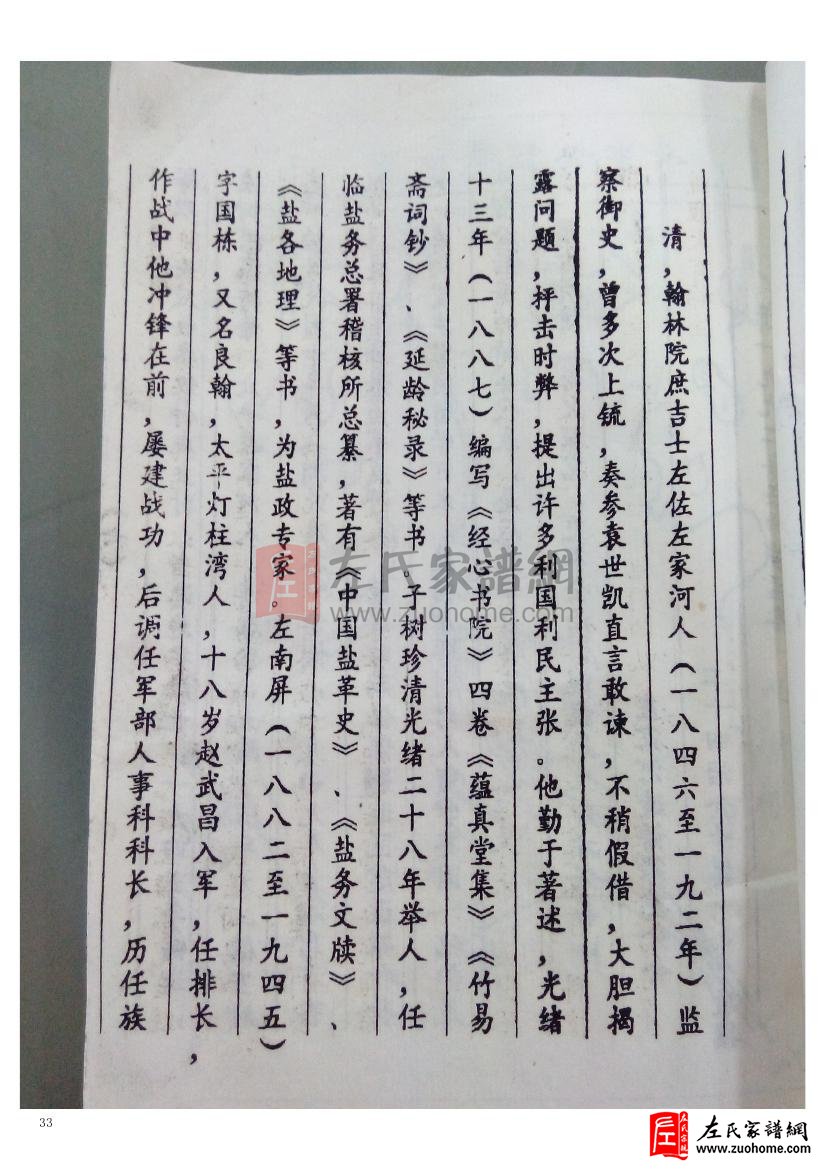 清，翰林院庶吉士左佐左家河人（一八四六至一九二年）监
察御史，曾多次上锍，奏参袁世凯直言敢谏，不稍假借，大胆揭
露问题，抨击时弊，提出许多利国利民主张。他勤于著述，光绪
十三年（一八八七）编写《经心书院》四卷《蕴真堂集》《竹易
斋词钞》、《延龄秘录》等书。子树珍清光绪二十八年举人，任
临盐务总署稽核所总纂，著有《中国盐革史》、《盐务文牍》、
《盐各地理》等书，为盐政专家。左南屏（一八八二至一九四五）
字国栋，又名良翰，太平灯柱湾人，十八岁赵武昌入军，任排长，
作战中他冲锋在前，屡建战功，后调任军部人事科科长，历任族
左氏家譜網
www.zuohome.com
33
左氏家譜網
www.zuohome.com